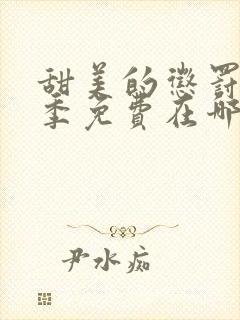 甜美的惩罚
季免费在哪
尹水痴